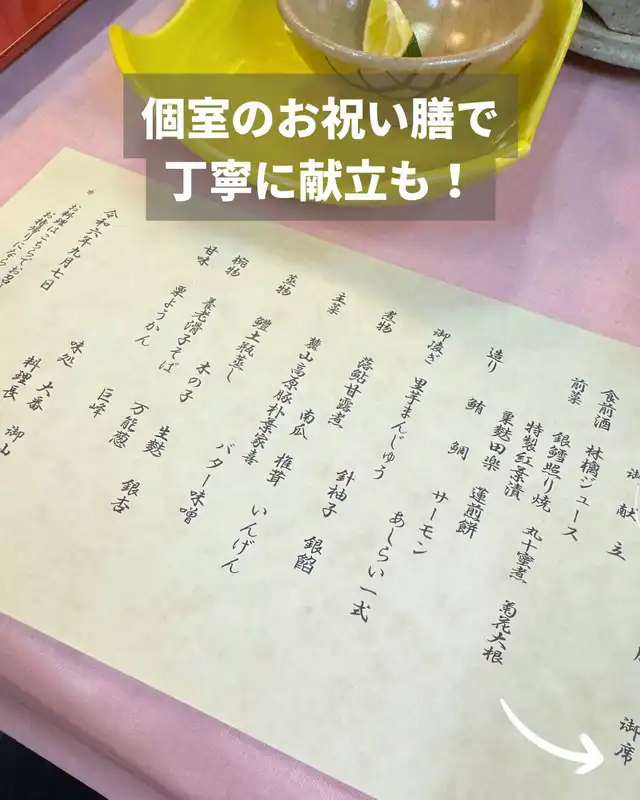 個室のお祝い膳で
丁寧に献立も！
御席
御献立
食前酒 林檎ジュース
前菜 銀鱈照り焼 丸十蜜煮 菊花大根
特製紅葉漬
粟麩田楽 蓮煎餅
造り 鮪 鯛 サーモン あしらい一式
御凌ぎ 里芋まんじゅう
煮物 落鮎甘露煮 針柚子 銀餡
主菜 麓山高原豚朴葉家喜
南瓜 椎茸 いんげん
バター味噌
蒸物 鱧土瓶蒸し 木の子 生麩 銀杏
椀物 養老滑子そば 万能葱
甘味 栗ようかん 巨峰
令和六年九月七日
味処 大番
料理長 御山
＊ お料理はこちらでお召
お持帰りになら